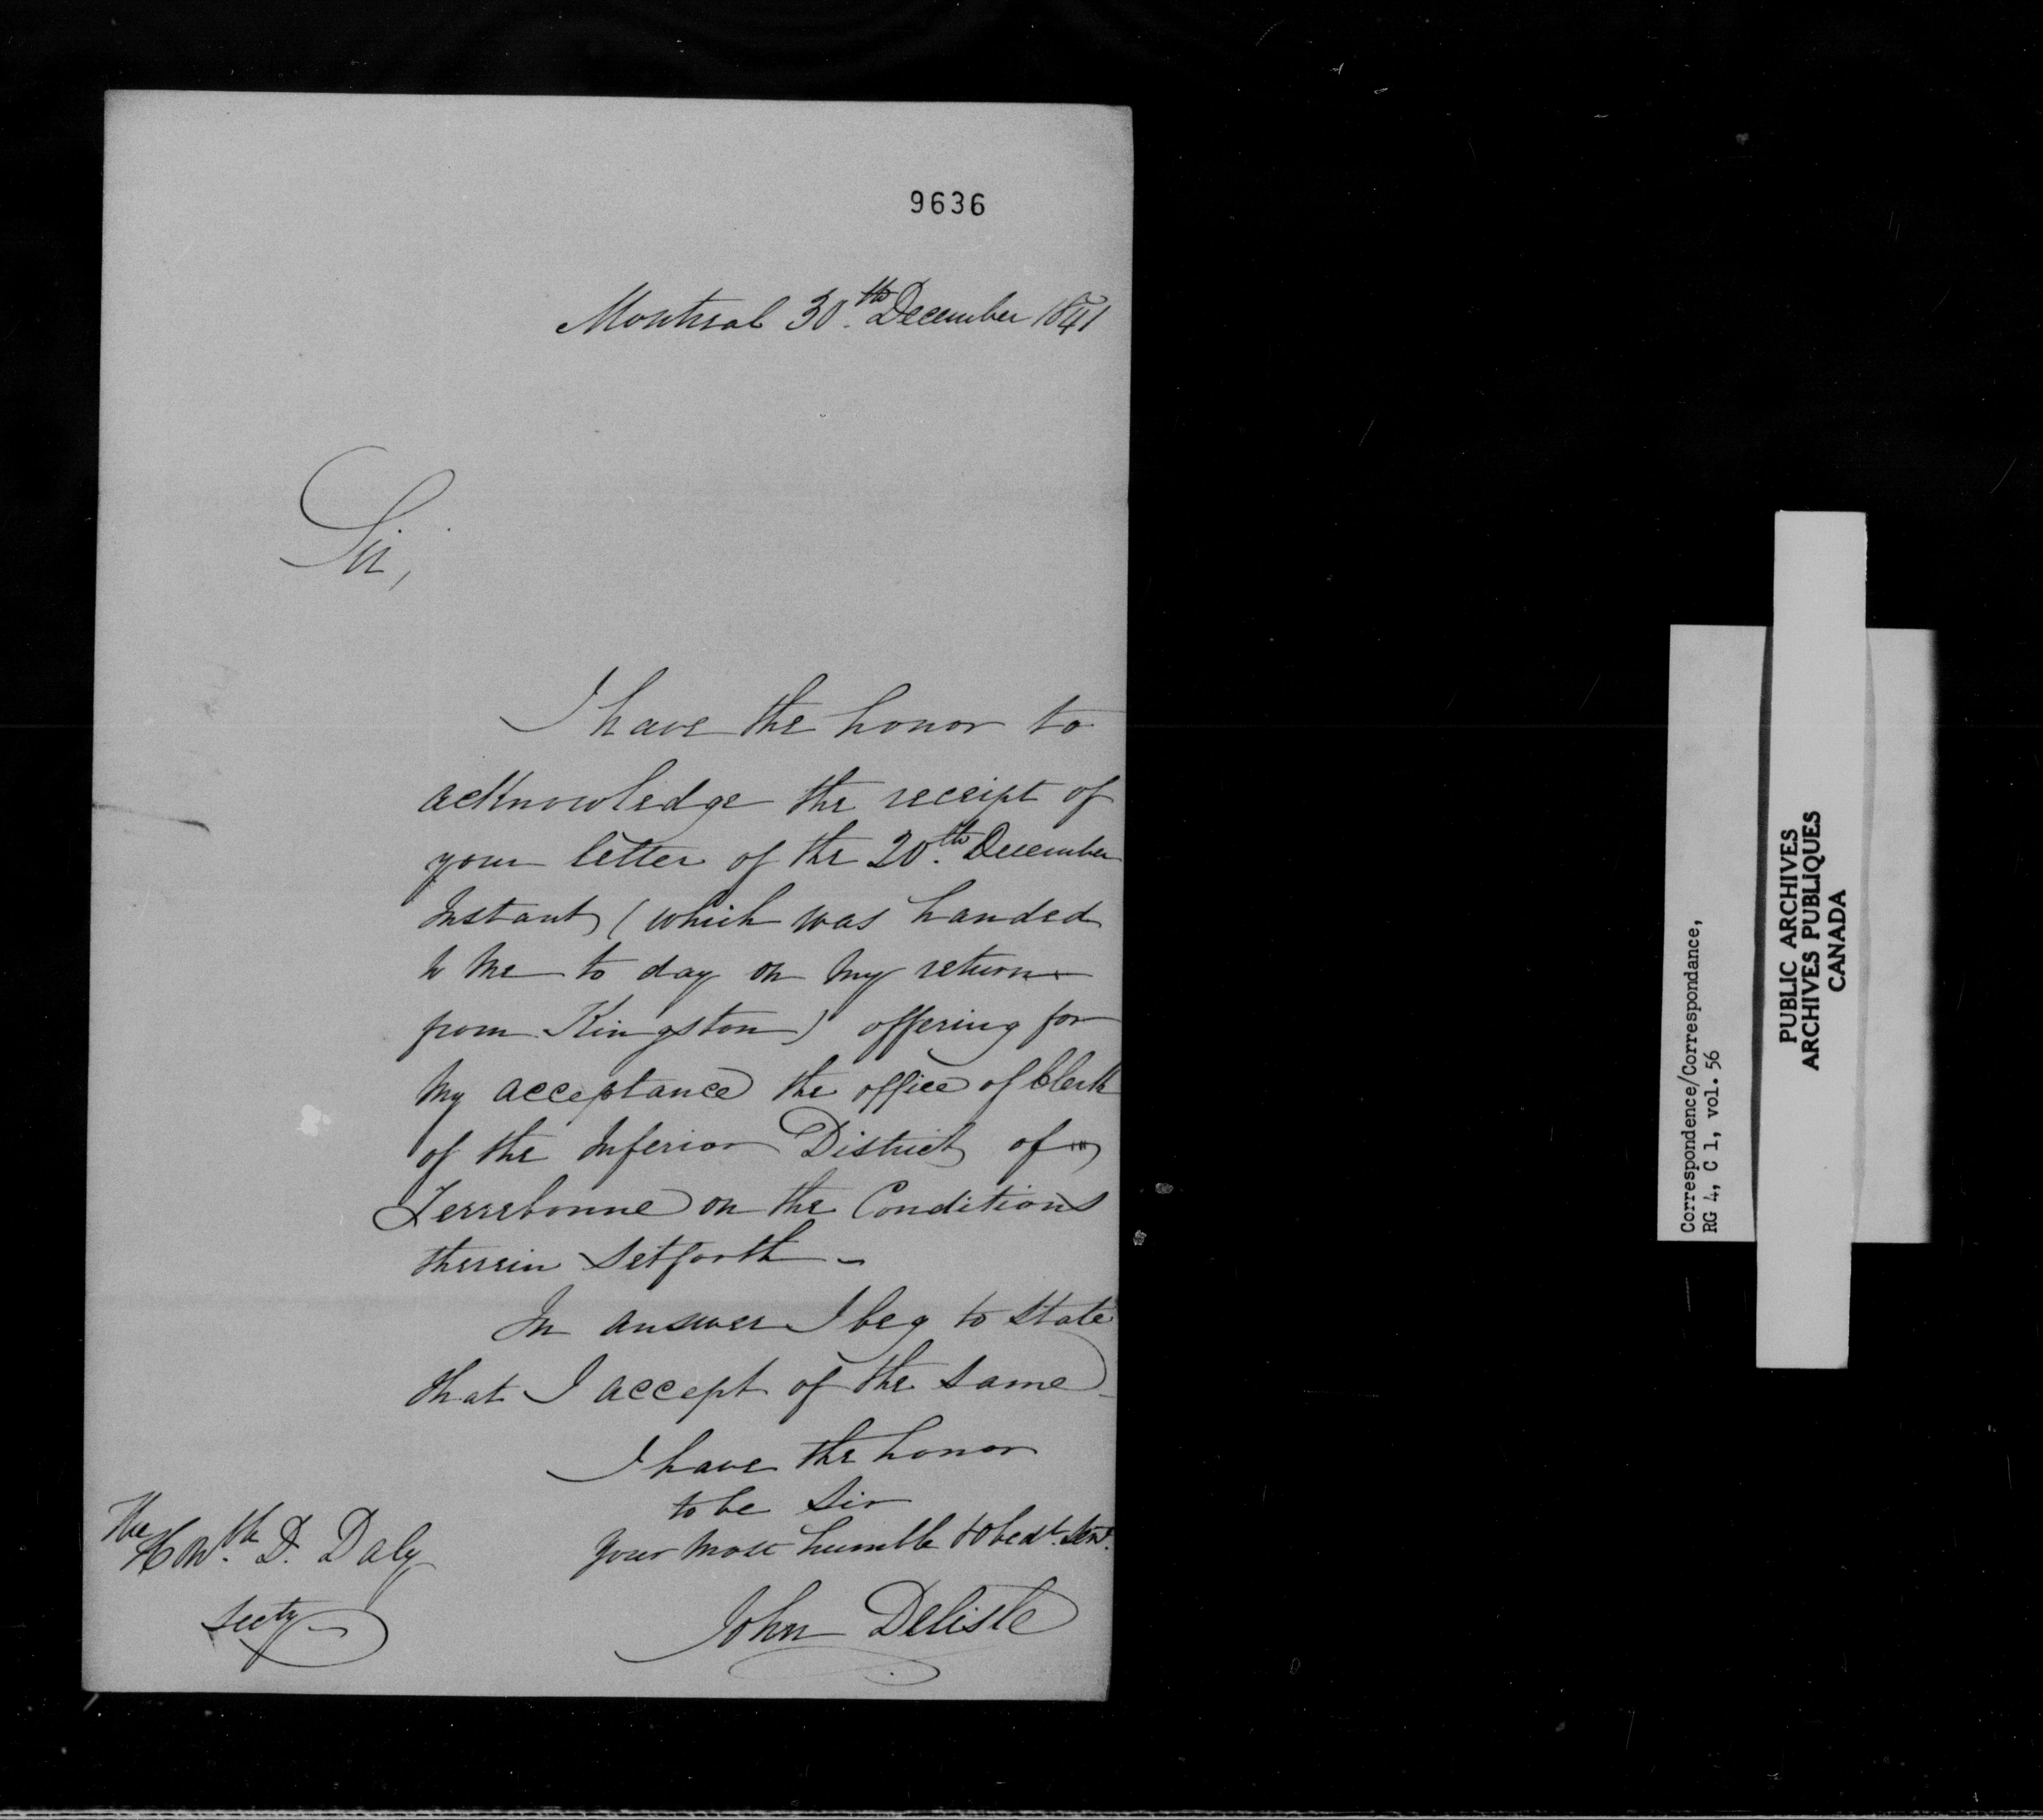 9636
Montreal 30th. December 1841
Sir,
I have the honor to
acknowledge the receipt of
your letter of the 20th. December
Instant (which was handed
to me to day on my return
from Kingston) offering for
my acceptance the office of Clerk
of the Inferior District of
Terrebonne on the Conditions
therein setforth -
In answer I beg to state
that I accept of the same -
I have the honor
to be Sir
your most humble & obedt. Sert.
John Delisle
The
Honble. D. Daly
Secty
Correspondence/Correspondance,
RG 4, C 1, vol. 56
PUBLIC ARCHIVES
ARCHIVES PUBLIQUES
CANADA